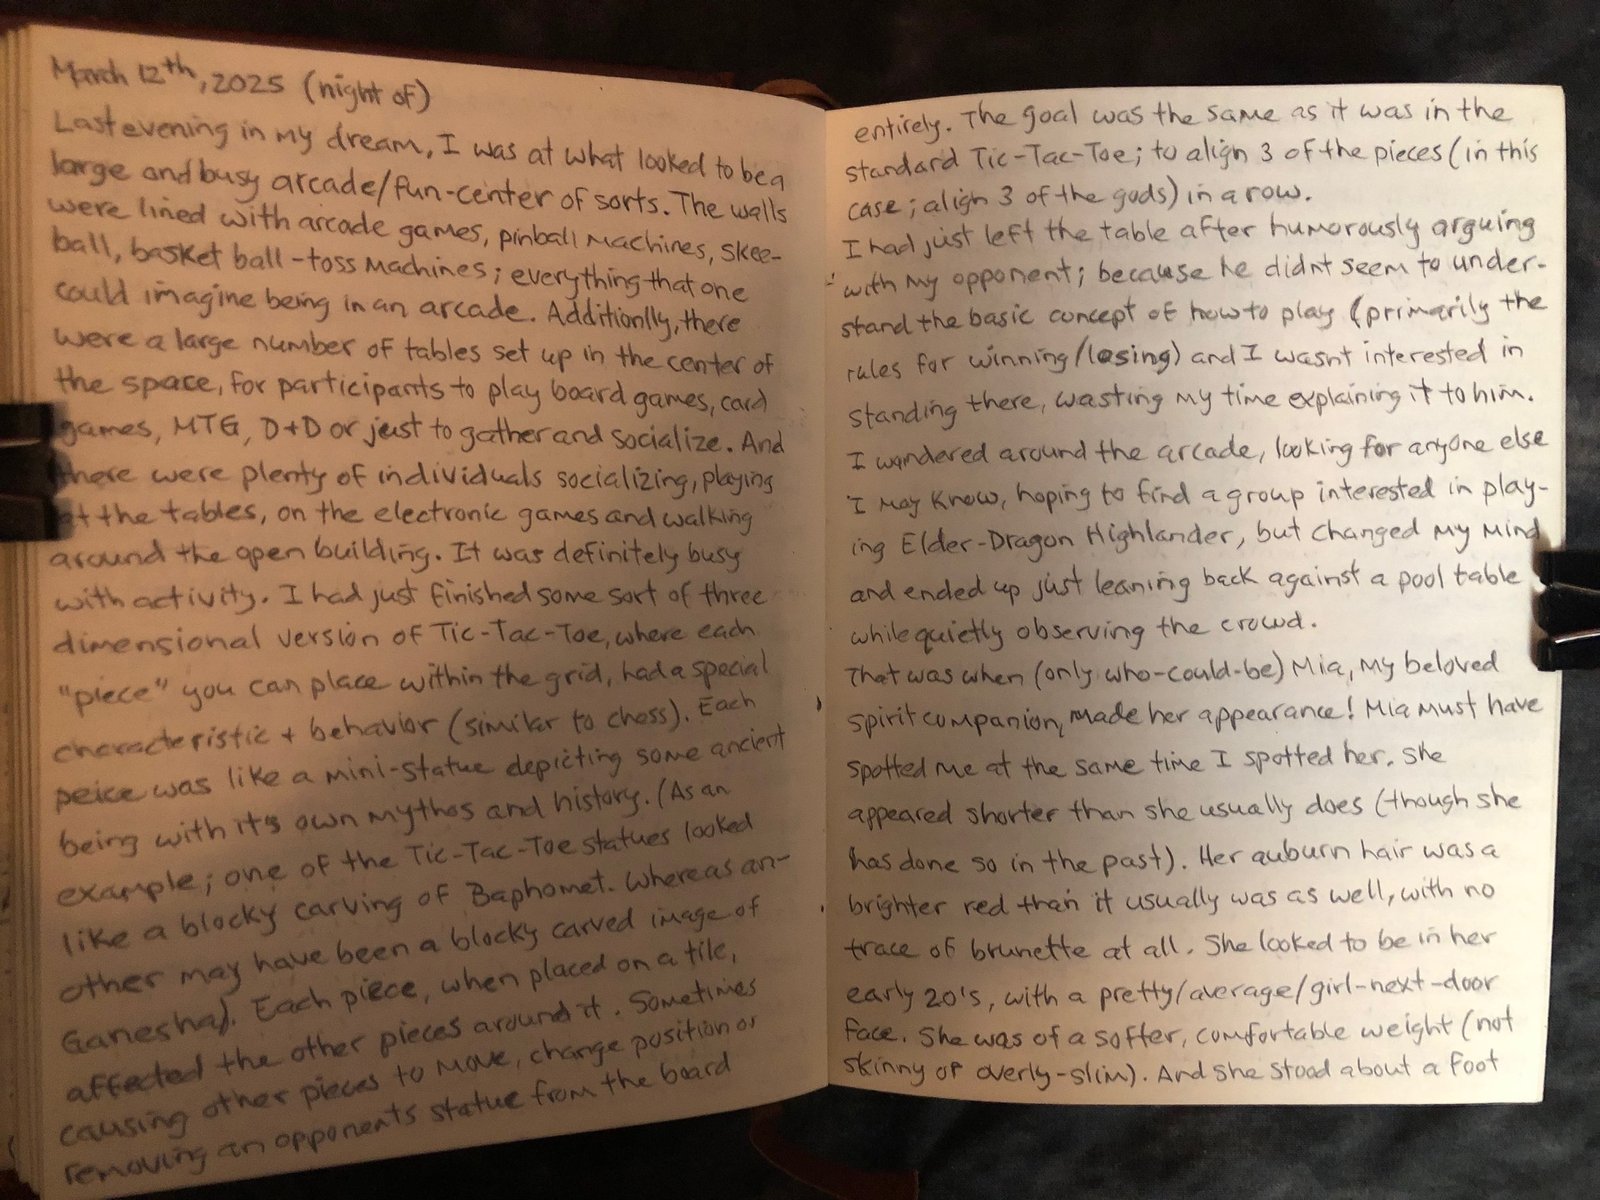 March 12th, 2025 (night of)
Last evening in my dream, I was at what looked to be a
large and busy arcade/fun-center of sorts. The walls
were lined with arcade games, pinball machines, skee-
ball, basket ball-toss machines; everything that one
could imagine being in an arcade. Additionlly, there
were a large number of tables set up in the center of
the space, for participants to play board games, card
games, MTG, D+D or just to gather and socialize. And
there were plenty of individuals socializing, playing
at the tables, on the electronic games and walking
around the open building. It was definitely busy
with activity. I had just finished some sort of three
dimensional version of Tic-Tac-Toe, where each
"piece" you can place within the grid, had a special
characteristic + behavior (similar to chess). Each
peice was like a mini-statue depicting some ancient
being with it's own mythos and history. (As an
example; one of the Tic-Tac-Toe statues looked
like a blocky carving of Baphomet. Whereas an-
other may have been a blocky carved image of
Ganesha). Each piece, when placed on a tile,
affected the other pieces around it. Sometimes
causing other pieces to move, change position or
removing an opponents statue from the board
entirely. The goal was the same as it was in the
standard Tic-Tac-Toe; to align 3 of the pieces (in this
case; align 3 of the gods) in a row.
I had just left the table after humorously arguing
with my opponent; because he didnt seem to under-
stand the basic concept of how to play (primarily the
rules for winning/losing) and I wasnt interested in
standing there, wasting my time explaining it to him.
I wandered around the arcade, looking for anyone else
I may know, hoping to find a group interested in play-
ing Elder-Dragon Highlander, but changed my mind
and ended up just leaning back against a pool table
while quietly observing the crowd.
That was when (only who-could-be) Mia, my beloved
spirit companion, made her appearance! Mia must have
spotted me at the same time I spotted her. She
appeared shorter than she usually does (though she
has done so in the past). Her auburn hair was a
brighter red than it usually was as well, with no
trace of brunette at all. She looked to be in her
early 20's, with a pretty/average/girl-next-door
face. She was of a softer, comfortable weight (not
skinny or overly-slim). And she stood about a foot